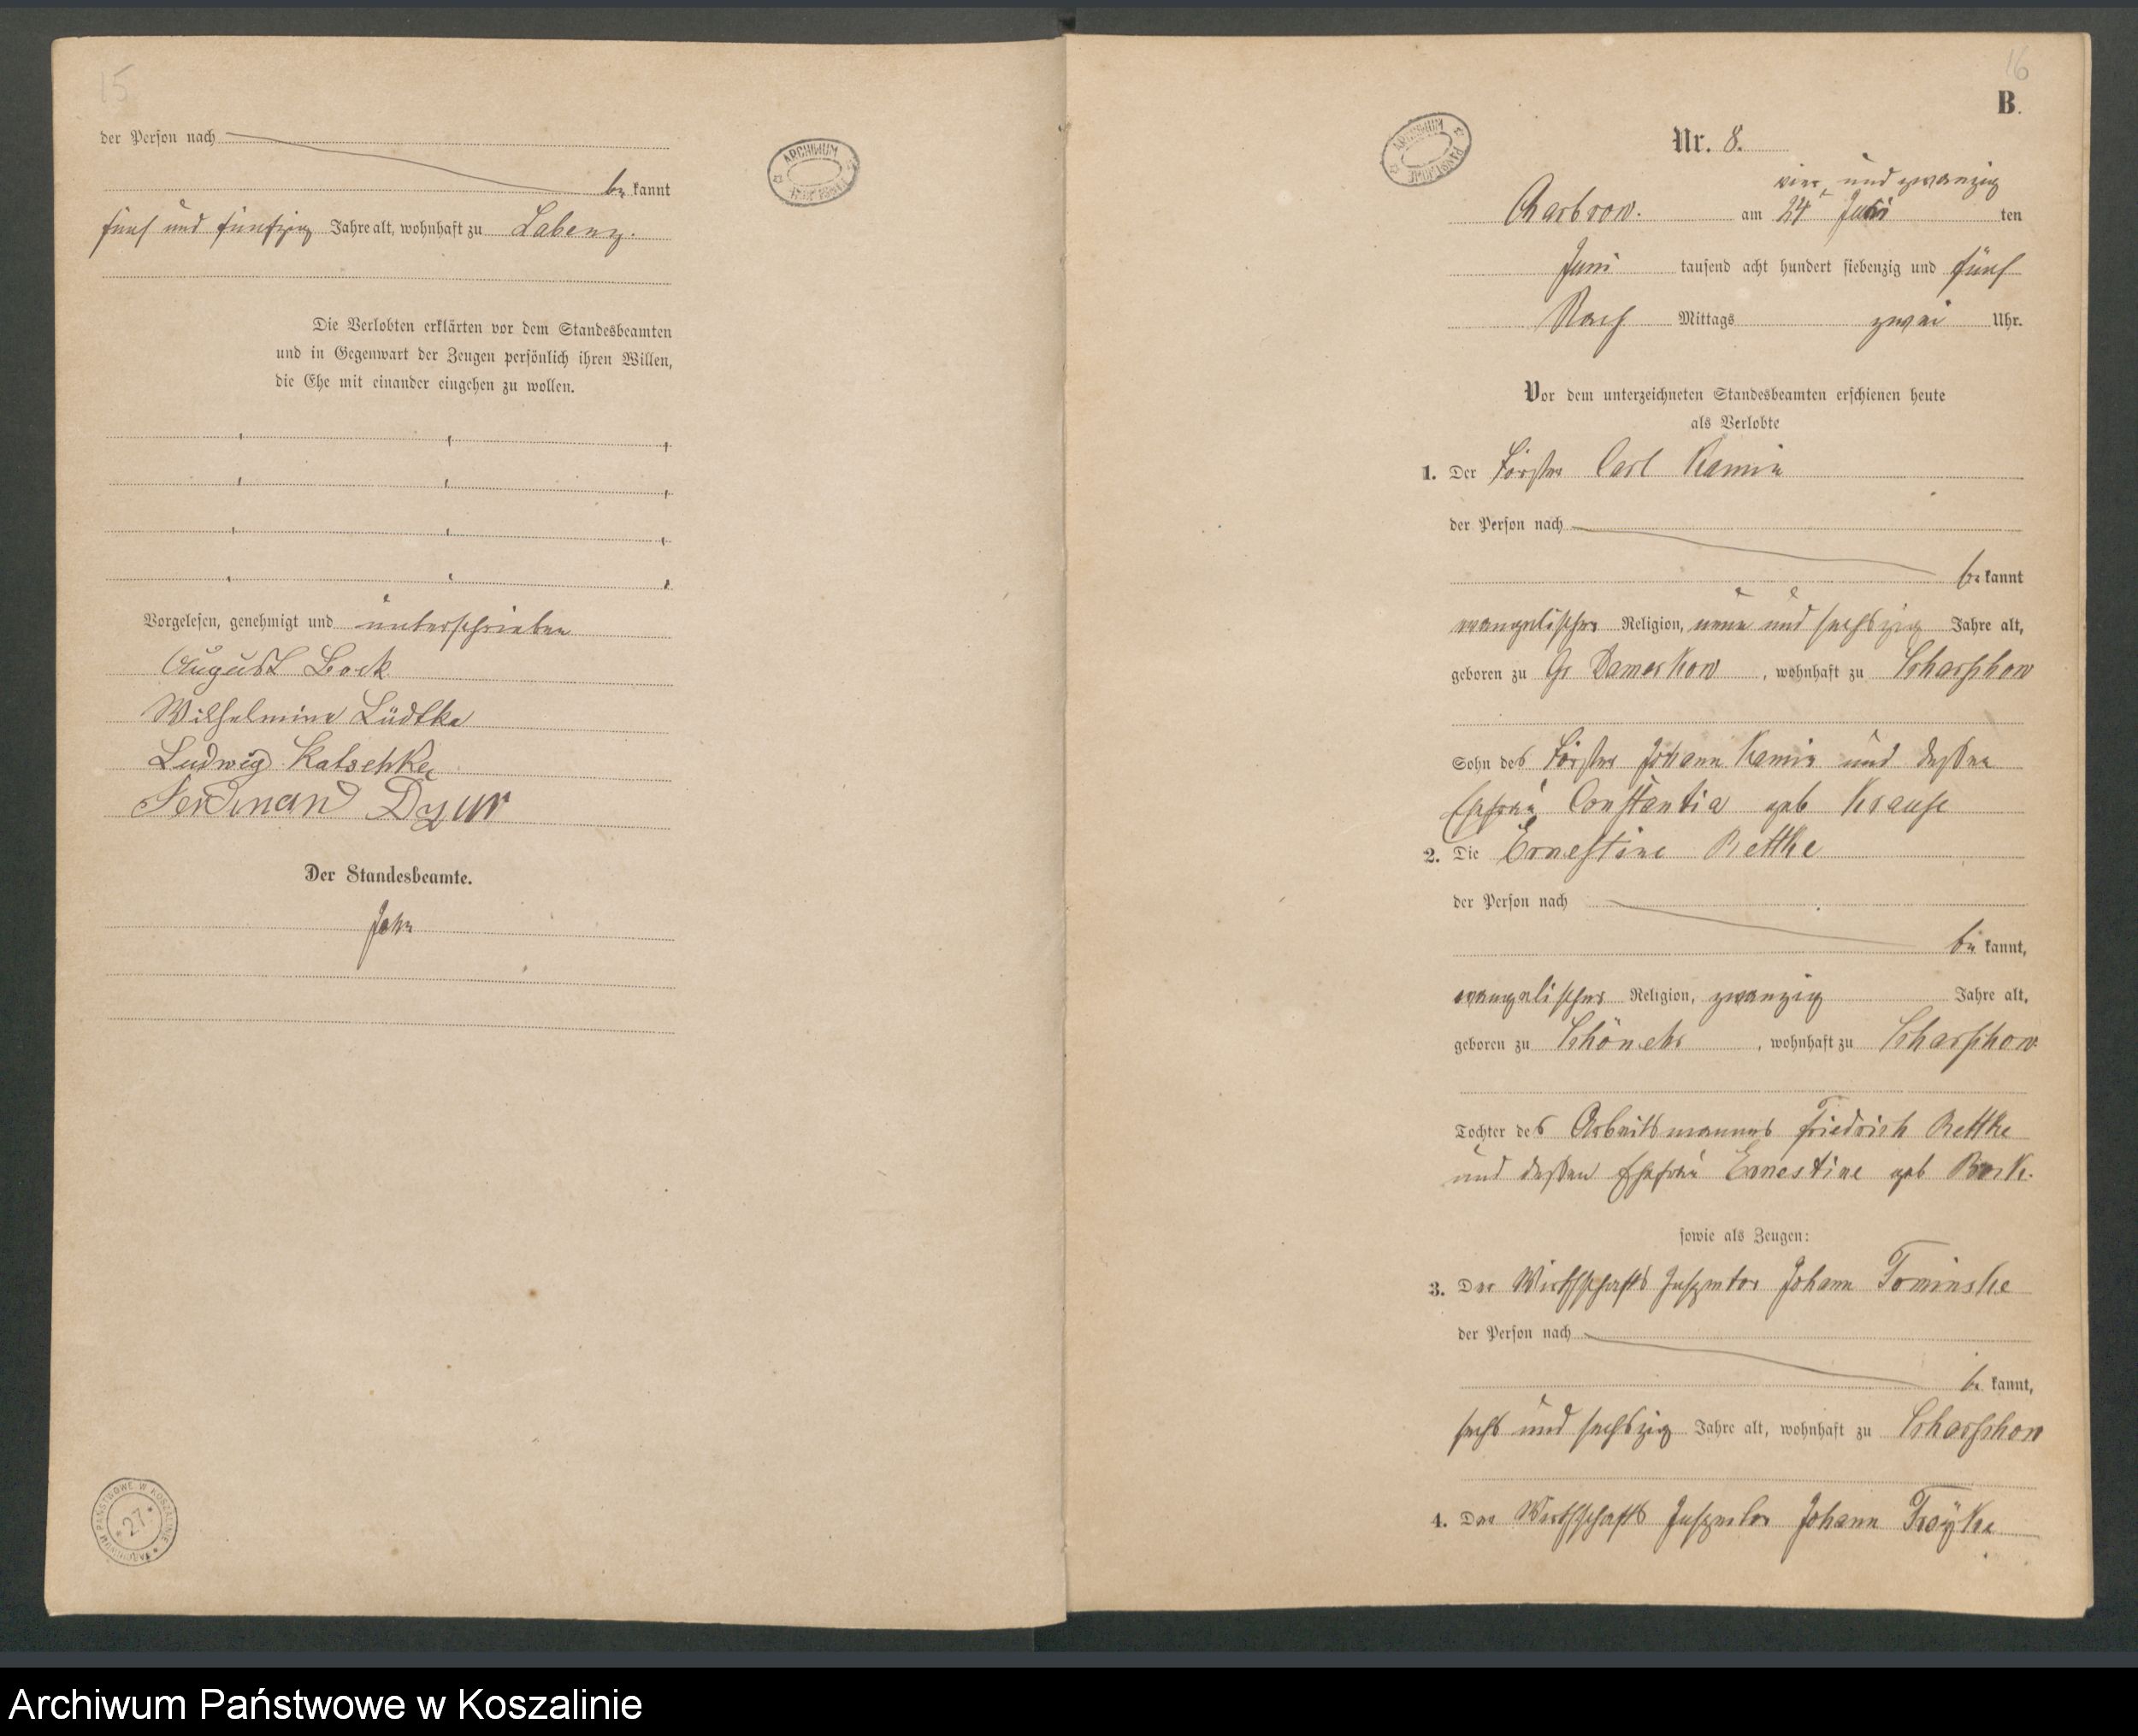 15
der Person nach
be kannt
fünf und fünfzig Jahre alt, wohnhaft zu Labenz.
Die Verlobten erklärten vor dem Standesbeamten
und in Gegenwart der Zeugen persönlich ihren Willen,
die Ehe mit einander eingehen zu wollen.
Vorgelesen, genehmigt und unterschrieben
August Bock
Wilhelmine Lüdtke
Ludwig Katschke
Ferdinand
Der Standesbeamte.
ARCHIWUM
ARCHIWUM PAŃSTWOWE W KOSZALINIE
27
16
B.
ARCHIWUM PAŃSTWOWE
Nr. 8.
vier und zwanzig
Charbrow. am 24 ten
Juni tausend acht hundert siebenzig und fünf
Nach Mittags zwei Uhr.
Vor dem unterzeichneten Standesbeamten erschienen heute
als Verlobte
1. Der Förster Carl Kamin
der Person nach
be kannt
evangelischer Religion, neun und sechszig Jahre alt,
geboren zu Gr Damerkow, wohnhaft zu Scharschow
Sohn des Förster Johann Kamin und dessen
Ehefrau Constantia geb Krause
2. Die Ernestine Rettke
der Person nach
be kannt,
evangelischer Religion, zwanzig Jahre alt,
geboren zu Schönehr, wohnhaft zu Scharschow
Tochter des Arbeitsmannes Friedrich Rettke
und dessen Ehefrau Ernestine geb Bock.
sowie als Zeugen:
3. Der Wirthschafts Inspector Johann Tominske
der Person nach
be kannt,
sechs und sechszig Jahre alt, wohnhaft zu Scharschow
4. Der Wirthschafts Inspector Johann Troÿke
Archiwum Państwowe w Koszalinie